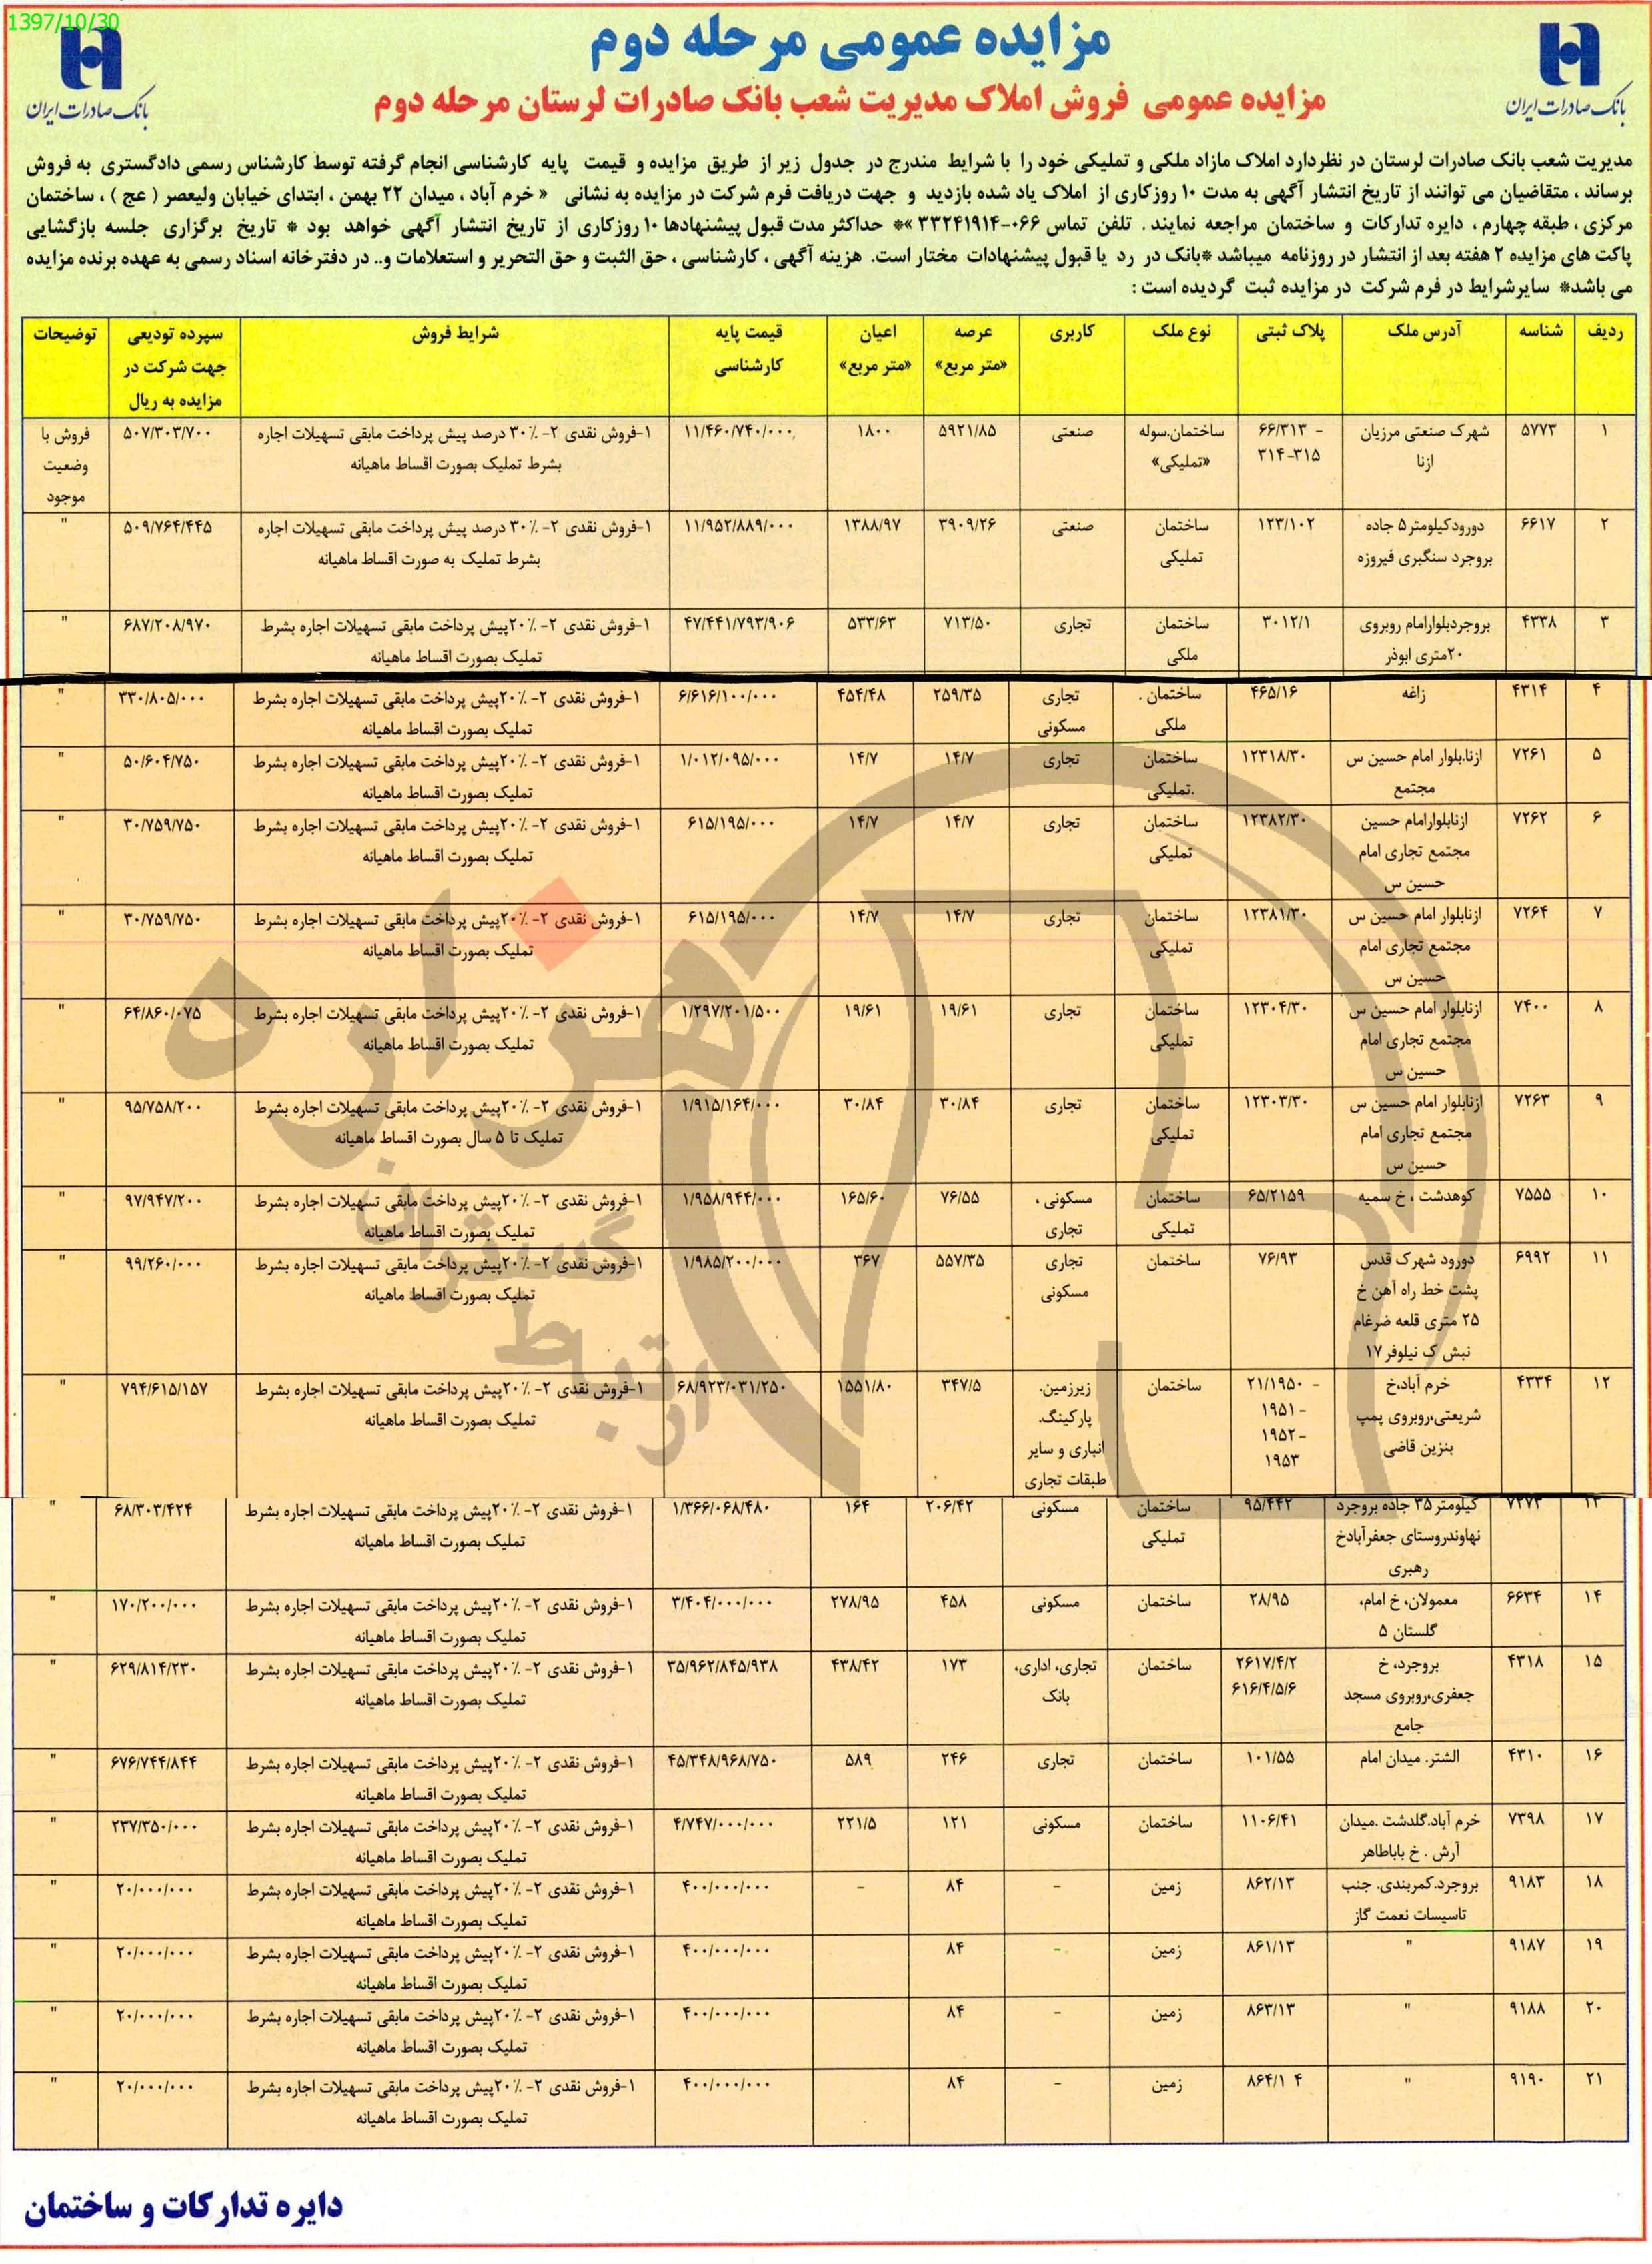 1397/10/30
مزایده عمومی مرحله دوم
مزایده عمومی فروش املاک مدیریت شعب بانک صادرات لرستان مرحله دوم
بانک صادرات ایران
بانک صادرات ایران
مدیریت شعب بانک صادرات لرستان در نظردارد املاک مازاد ملکی و تملیکی خود را با شرایط مندرج در جدول زیر از طریق مزایده و قیمت پایه کارشناسی انجام گرفته توسط کارشناس رسمی دادگستری به فروش
برساند ، متقاضیان می توانند از تاریخ انتشار آگهی به مدت ۱۰ روزکاری از املاک یاد شده بازدید و جهت دریافت فرم شرکت در مزایده به نشانی « خرم آباد ، میدان ۲۲ بهمن ، ابتدای خیابان ولیعصر ( عج ) ، ساختمان
مرکزی ، طبقه چهارم ، دایره تدارکات و ساختمان مراجعه نمایند . تلفن تماس ۰۶۶-۳۳۲۴۱۹۱۴ »* حداکثر مدت قبول پیشنهادها ۱۰ روزکاری از تاریخ انتشار آگهی خواهد بود * تاریخ برگزاری جلسه بازگشایی
پاکت های مزایده ۲ هفته بعد از انتشار در روزنامه میباشد *بانک در رد یا قبول پیشنهادات مختار است. هزینه آگهی ، کارشناسی ، حق الثبت و حق التحریر و استعلامات و.. در دفترخانه اسناد رسمی به عهده برنده مزایده
می باشد* سایرشرایط در فرم شرکت در مزایده ثبت گردیده است :
ردیف شناسه آدرس ملک پلاک ثبتی نوع ملک کاربری عرصه اعیان قیمت پایه شرایط فروش سپرده تودیعی توضیحات
«متر مربع» «متر مربع» کارشناسی جهت شرکت در
مزایده به ریال
۱ ۵۷۷۳ شهرک صنعتی مرزیان ۶۶/۳۱۳ - ساختمان.سوله صنعتی ۵۹۲۱/۸۵ ۱۸۰۰ ۱۱/۴۶۰/۷۴۰/۰۰۰ ۱-فروش نقدی ۲- ۳۰٪ درصد پیش پرداخت مابقی تسهیلات اجاره ۵۰۷/۳۰۳/۷۰۰ فروش با
ازنا ۳۱۴-۳۱۵ «تملیکی» بشرط تملیک بصورت اقساط ماهیانه وضعیت
موجود
۲ ۶۶۱۷ دورودکیلومتر۵ جاده ۱۲۳/۱۰۲ ساختمان صنعتی ۳۹۰۹/۲۶ ۱۳۸۸/۹۷ ۱۱/۹۵۲/۸۸۹/۰۰۰ ۱-فروش نقدی ۲- ۳۰٪ درصد پیش پرداخت مابقی تسهیلات اجاره ۵۰۹/۷۶۴/۴۴۵ "
بروجرد سنگبری فیروزه تملیکی بشرط تملیک به صورت اقساط ماهیانه
۳ ۴۳۳۸ بروجردبلوارامام روبروی ۳۰۱۲/۱ ساختمان تجاری ۷۱۳/۵۰ ۵۳۳/۶۳ ۴۷/۴۴۱/۷۹۳/۹۰۶ ۱-فروش نقدی ۲- ۲۰٪پیش پرداخت مابقی تسهیلات اجاره بشرط ۶۸۷/۲۰۸/۹۷۰ "
۲۰متری ابوذر ملکی تملیک بصورت اقساط ماهیانه
۴ ۴۳۱۴ زاغه ۴۶۵/۱۶ ساختمان . تجاری ۲۵۹/۳۵ ۴۵۴/۴۸ ۶/۶۱۶/۱۰۰/۰۰۰ ۱-فروش نقدی ۲- ۲۰٪پیش پرداخت مابقی تسهیلات اجاره بشرط ۳۳۰/۸۰۵/۰۰۰ "
ملکی مسکونی تملیک بصورت اقساط ماهیانه
۵ ۷۲۶۱ ازنا.بلوار امام حسین س ۱۲۳۱۸/۳۰ ساختمان تجاری ۱۴/۷ ۱۴/۷ ۱/۰۱۲/۰۹۵/۰۰۰ ۱-فروش نقدی ۲- ۲۰٪پیش پرداخت مابقی تسهیلات اجاره بشرط ۵۰/۶۰۴/۷۵۰ "
مجتمع .تملیکی تملیک بصورت اقساط ماهیانه
۶ ۷۲۶۲ ازنابلوارامام حسین ۱۲۳۸۲/۳۰ ساختمان تجاری ۱۴/۷ ۱۴/۷ ۶۱۵/۱۹۵/۰۰۰ ۱-فروش نقدی ۲- ۲۰٪پیش پرداخت مابقی تسهیلات اجاره بشرط ۳۰/۷۵۹/۷۵۰ "
مجتمع تجاری امام تملیکی تملیک بصورت اقساط ماهیانه
حسین س
۷ ۷۲۶۴ ازنابلوار امام حسین س ۱۲۳۸۱/۳۰ ساختمان تجاری ۱۴/۷ ۱۴/۷ ۶۱۵/۱۹۵/۰۰۰ ۱-فروش نقدی ۲- ۲۰٪پیش پرداخت مابقی تسهیلات اجاره بشرط ۳۰/۷۵۹/۷۵۰ "
مجتمع تجاری امام تملیکی تملیک بصورت اقساط ماهیانه
حسین س
۸ ۷۴۰۰ ازنابلوار امام حسین س ۱۲۳۰۴/۳۰ ساختمان تجاری ۱۹/۶۱ ۱۹/۶۱ ۱/۲۹۷/۲۰۱/۵۰۰ ۱-فروش نقدی ۲- ۲۰٪پیش پرداخت مابقی تسهیلات اجاره بشرط ۶۴/۸۶۰/۰۷۵ "
مجتمع تجاری امام تملیکی تملیک بصورت اقساط ماهیانه
حسین س
۹ ۷۲۶۳ ازنابلوار امام حسین س ۱۲۳۰۳/۳۰ ساختمان تجاری ۳۰/۸۴ ۳۰/۸۴ ۱/۹۱۵/۱۶۴/۰۰۰ ۱-فروش نقدی ۲- ۲۰٪پیش پرداخت مابقی تسهیلات اجاره بشرط ۹۵/۷۵۸/۲۰۰ "
مجتمع تجاری امام تملیکی تملیک تا ۵ سال بصورت اقساط ماهیانه
حسین س
۱۰ ۷۵۵۵ کوهدشت ، خ سمیه ۶۵/۲۱۵۹ ساختمان مسکونی ، ۷۶/۵۵ ۱۶۵/۶۰ ۱/۹۵۸/۹۴۴/۰۰۰ ۱-فروش نقدی ۲- ۲۰٪پیش پرداخت مابقی تسهیلات اجاره بشرط ۹۷/۹۴۷/۲۰۰ "
تملیکی تجاری تملیک بصورت اقساط ماهیانه
۱۱ ۶۹۹۲ دورود شهرک قدس ۷۶/۹۳ ساختمان تجاری ۵۵۷/۳۵ ۳۶۷ ۱/۹۸۵/۲۰۰/۰۰۰ ۱-فروش نقدی ۲- ۲۰٪پیش پرداخت مابقی تسهیلات اجاره بشرط ۹۹/۲۶۰/۰۰۰ "
پشت خط راه آهن خ مسکونی تملیک بصورت اقساط ماهیانه
۲۵ متری قلعه ضرغام
نبش ک نیلوفر ۱۷
۱۲ ۴۳۳۴ خرم آباد،خ ۲۱/۱۹۵۰ - ساختمان زیرزمین، ۳۴۷/۵ ۱۵۵۱/۸۰ ۶۸/۹۲۳/۰۳۱/۲۵۰ ۱-فروش نقدی ۲- ۲۰٪پیش پرداخت مابقی تسهیلات اجاره بشرط ۷۹۴/۶۱۵/۱۵۷ "
شریعتی،روبروی پمپ ۱۹۵۱ - پارکینگ. تملیک بصورت اقساط ماهیانه
بنزین قاضی ۱۹۵۲ - انباری و سایر
۱۹۵۳ طبقات تجاری
۱۳ ۷۲۷۳ کیلومتر ۳۵ جاده بروجرد ۹۵/۴۴۲ ساختمان مسکونی ۲۰۶/۴۲ ۱۶۴ ۱/۳۶۶/۰۶۸/۴۸۰ ۱-فروش نقدی ۲- ۲۰٪پیش پرداخت مابقی تسهیلات اجاره بشرط ۶۸/۳۰۳/۴۲۴ "
نهاوندروستای جعفرآبادخ تملیکی تملیک بصورت اقساط ماهیانه
رهبری
۱۴ ۶۶۳۴ معمولان، خ امام، ۲۸/۹۵ ساختمان مسکونی ۴۵۸ ۲۷۸/۹۵ ۳/۴۰۴/۰۰۰/۰۰۰ ۱-فروش نقدی ۲- ۲۰٪پیش پرداخت مابقی تسهیلات اجاره بشرط ۱۷۰/۲۰۰/۰۰۰ "
گلستان ۵ تملیک بصورت اقساط ماهیانه
۱۵ ۴۳۱۸ بروجرد، خ ۲۶۱۷/۴/۲ ساختمان تجاری، اداری، ۱۷۳ ۴۳۸/۴۲ ۳۵/۹۶۲/۸۴۵/۹۳۸ ۱-فروش نقدی ۲- ۲۰٪پیش پرداخت مابقی تسهیلات اجاره بشرط ۶۲۹/۸۱۴/۲۳۰ "
جعفری،روبروی مسجد ۶۱۶/۴/۵/۶ بانک تملیک بصورت اقساط ماهیانه
جامع
۱۶ ۴۳۱۰ الشتر. میدان امام ۱۰۱/۵۵ ساختمان تجاری ۲۴۶ ۵۸۹ ۴۵/۳۴۸/۹۶۸/۷۵۰ ۱-فروش نقدی ۲- ۲۰٪پیش پرداخت مابقی تسهیلات اجاره بشرط ۶۷۶/۷۴۴/۸۴۴ "
تملیک بصورت اقساط ماهیانه
۱۷ ۷۳۹۸ خرم آباد.گلدشت .میدان ۱۱۰۶/۴۱ ساختمان مسکونی ۱۲۱ ۲۲۱/۵ ۴/۷۴۷/۰۰۰/۰۰۰ ۱-فروش نقدی ۲- ۲۰٪پیش پرداخت مابقی تسهیلات اجاره بشرط ۲۳۷/۳۵۰/۰۰۰ "
آرش . خ باباطاهر تملیک بصورت اقساط ماهیانه
۱۸ ۹۱۸۳ بروجرد.کمربندی. جنب ۸۶۲/۱۳ زمین - ۸۴ - ۴۰۰/۰۰۰/۰۰۰ ۱-فروش نقدی ۲- ۲۰٪پیش پرداخت مابقی تسهیلات اجاره بشرط ۲۰/۰۰۰/۰۰۰ "
تاسیسات نعمت گاز تملیک بصورت اقساط ماهیانه
۱۹ ۹۱۸۷ " ۸۶۱/۱۳ زمین - ۸۴ ۴۰۰/۰۰۰/۰۰۰ ۱-فروش نقدی ۲- ۲۰٪پیش پرداخت مابقی تسهیلات اجاره بشرط ۲۰/۰۰۰/۰۰۰ "
تملیک بصورت اقساط ماهیانه
۲۰ ۹۱۸۸ " ۸۶۳/۱۳ زمین - ۸۴ ۴۰۰/۰۰۰/۰۰۰ ۱-فروش نقدی ۲- ۲۰٪پیش پرداخت مابقی تسهیلات اجاره بشرط ۲۰/۰۰۰/۰۰۰ "
تملیک بصورت اقساط ماهیانه
۲۱ ۹۱۹۰ " ۸۶۴/۱۴ زمین - ۸۴ ۴۰۰/۰۰۰/۰۰۰ ۱-فروش نقدی ۲- ۲۰٪پیش پرداخت مابقی تسهیلات اجاره بشرط ۲۰/۰۰۰/۰۰۰ "
تملیک بصورت اقساط ماهیانه
دایره تدارکات و ساختمان